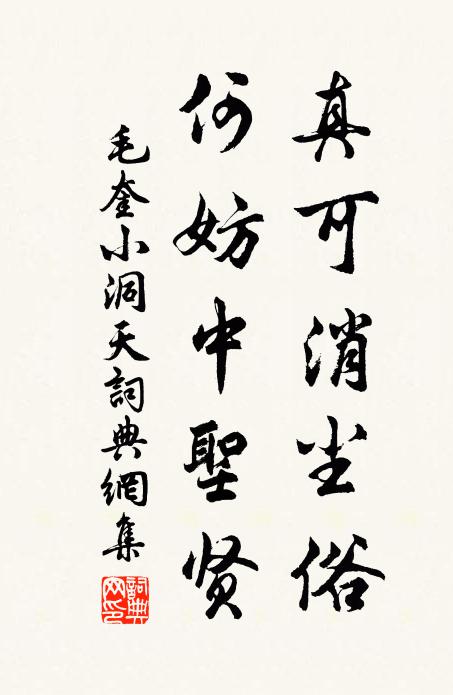 真可消尘俗
何妨中聖贤
毛奎小洞天詞典網集
詞典
网印